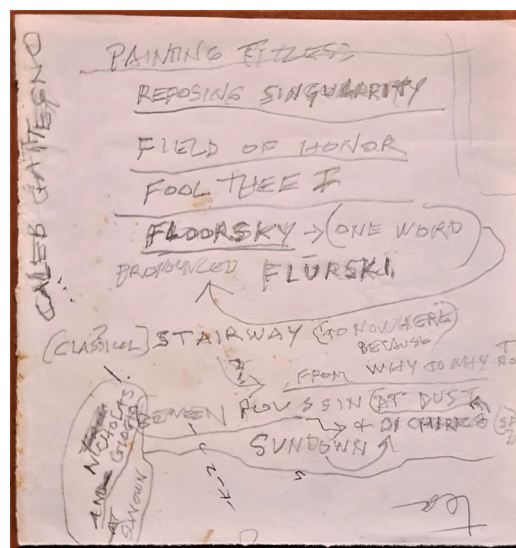 PAINTING TITLES:
REPOSING SINGULARITY
FIELD OF HONOR
FOOL THEE I
FLOORSKY → (ONE WORD)
PRONOUNCED FLURSKI.
(CLASSICAL) STAIRWAY (TO NOWHERE)
BECAUSE
FROM WHY TO WHY
BETWEEN POUSSIN (AT DUSK
& DI CHIRICO
SUNDOWN
NICHOLAS
AT
tea
CALEB